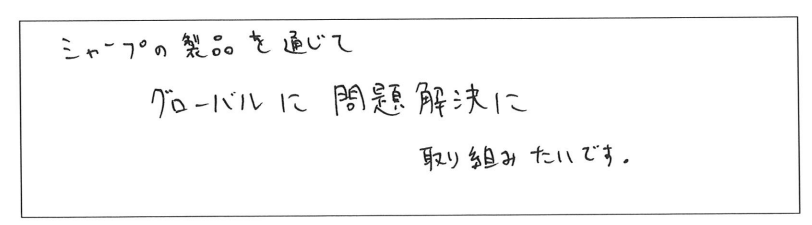 シャープの製品を通じて
グローバルに問題解決に
取り組みたいです。